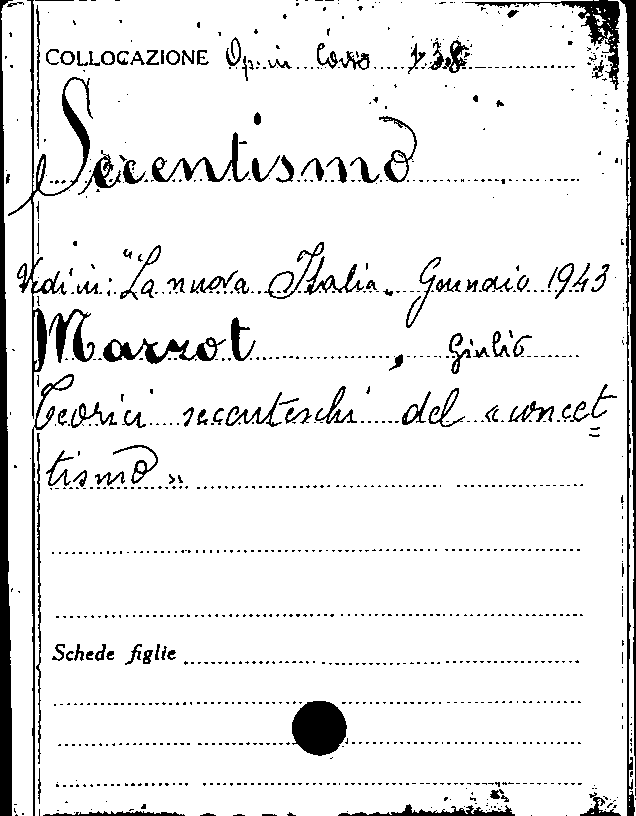 COLLOCAZIONE Op. in Corso 138
Secentismo
Vedi in: "La nuova Italia„ Gennaio 1943
Marzot, Giulio
Teorici secenteschi del «concet
tismo»
Schede figlie